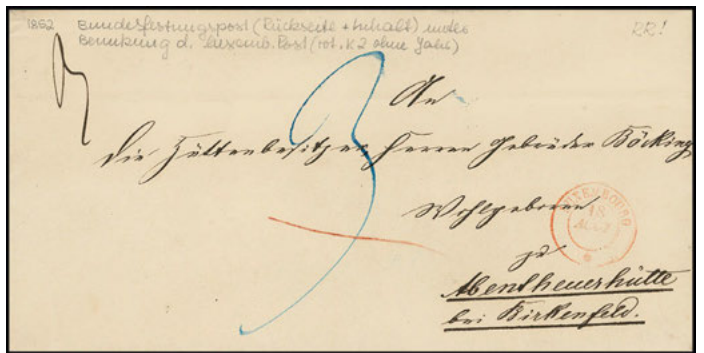 1852 Bundesfestungspost (Rückseite + Inhalt) unter
Benutzung d. Luxemb. Post (rot. K2 ohne Jahr)
RR!
3
An
die Hüttenbesitzer Herren Gebrüder Böcking
Wohlgeboren
LUXEMBOURG
18
zu
Abentheuerhütte
bei Birkenfeld.